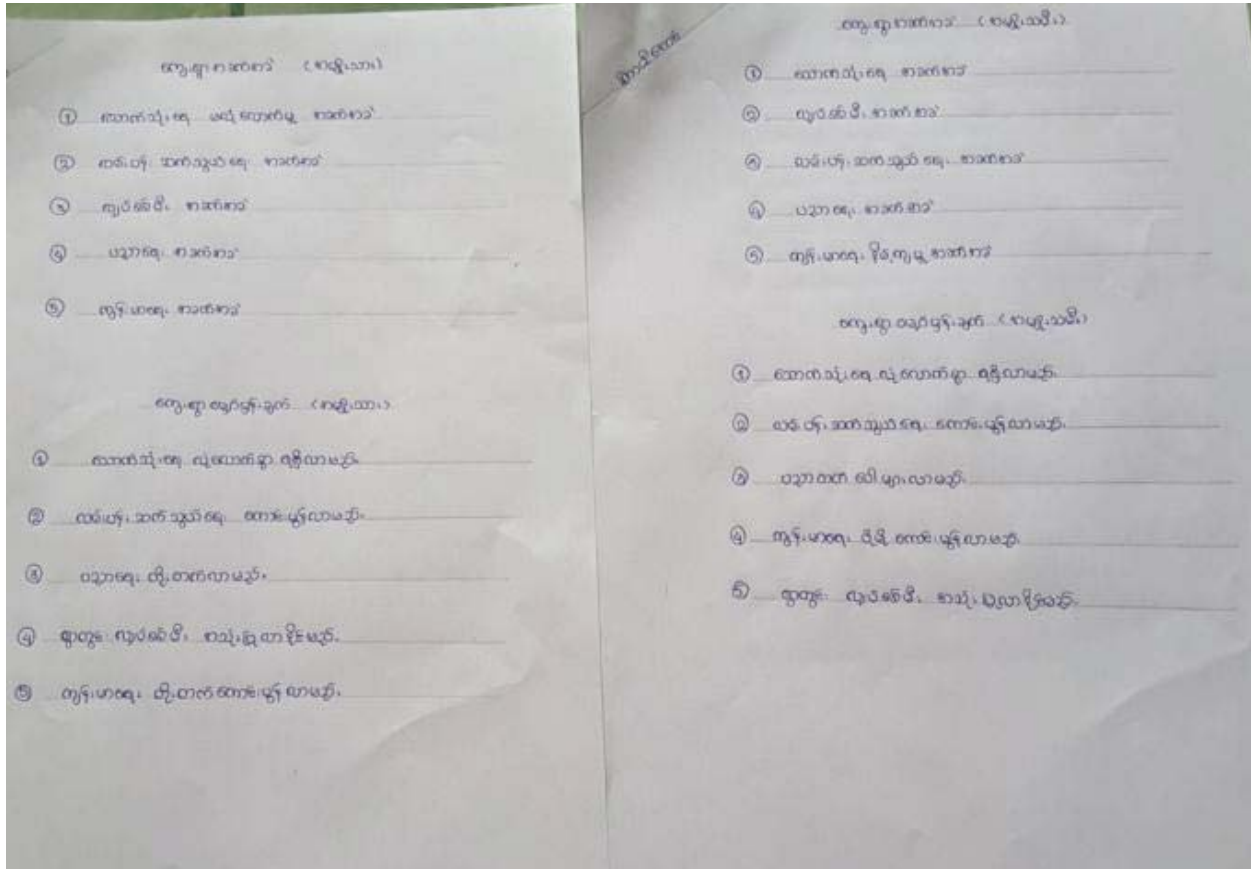 ကျေးရွာအခက်အခဲ (အမျိုးသား)
① သောက်သုံးရေ မလုံလောက်မှု အခက်အခဲ
② လမ်းပန်း ဆက်သွယ်ရေး အခက်အခဲ
③ လျှပ်စစ်မီး အခက်အခဲ
④ ပညာရေး အခက်အခဲ
⑤ ကျန်းမာရေး အခက်အခဲ
ကျေးရွာ မျှော်မှန်းချက် (အမျိုးသား)
① သောက်သုံးရေ လုံလောက်စွာ ရရှိလာမည်။
② လမ်းပန်း ဆက်သွယ်ရေး ကောင်းမွန်လာမည်။
③ ပညာရေး တိုးတက်လာမည်။
④ ရွာတွင်း လျှပ်စစ်မီး အသုံးပြုလာနိုင်မည်။
⑤ ကျန်းမာရေး တိုးတက်ကောင်းမွန်လာမည်။
ကျေးရွာအခက်အခဲ (အမျိုးသမီး)
① သောက်သုံးရေ အခက်အခဲ
② လျှပ်စစ်မီး အခက်အခဲ
③ လမ်းပန်း ဆက်သွယ်ရေး အခက်အခဲ
④ ပညာရေး အခက်အခဲ
⑤ ကျန်းမာရေး နိမ့်ကျမှု အခက်အခဲ
ကျေးရွာ မျှော်မှန်းချက် (အမျိုးသမီး)
① သောက်သုံးရေ လုံလောက်စွာ ရရှိလာမည်။
② လမ်းပန်း ဆက်သွယ်ရေး ကောင်းမွန်လာမည်။
③ ပညာတတ် ပေါများလာမည်။
④ ကျန်းမာရေး ပိုမို ကောင်းမွန်လာမည်။
⑤ ရွာတွင်း လျှပ်စစ်မီး အသုံးပြုလာနိုင်မည်။